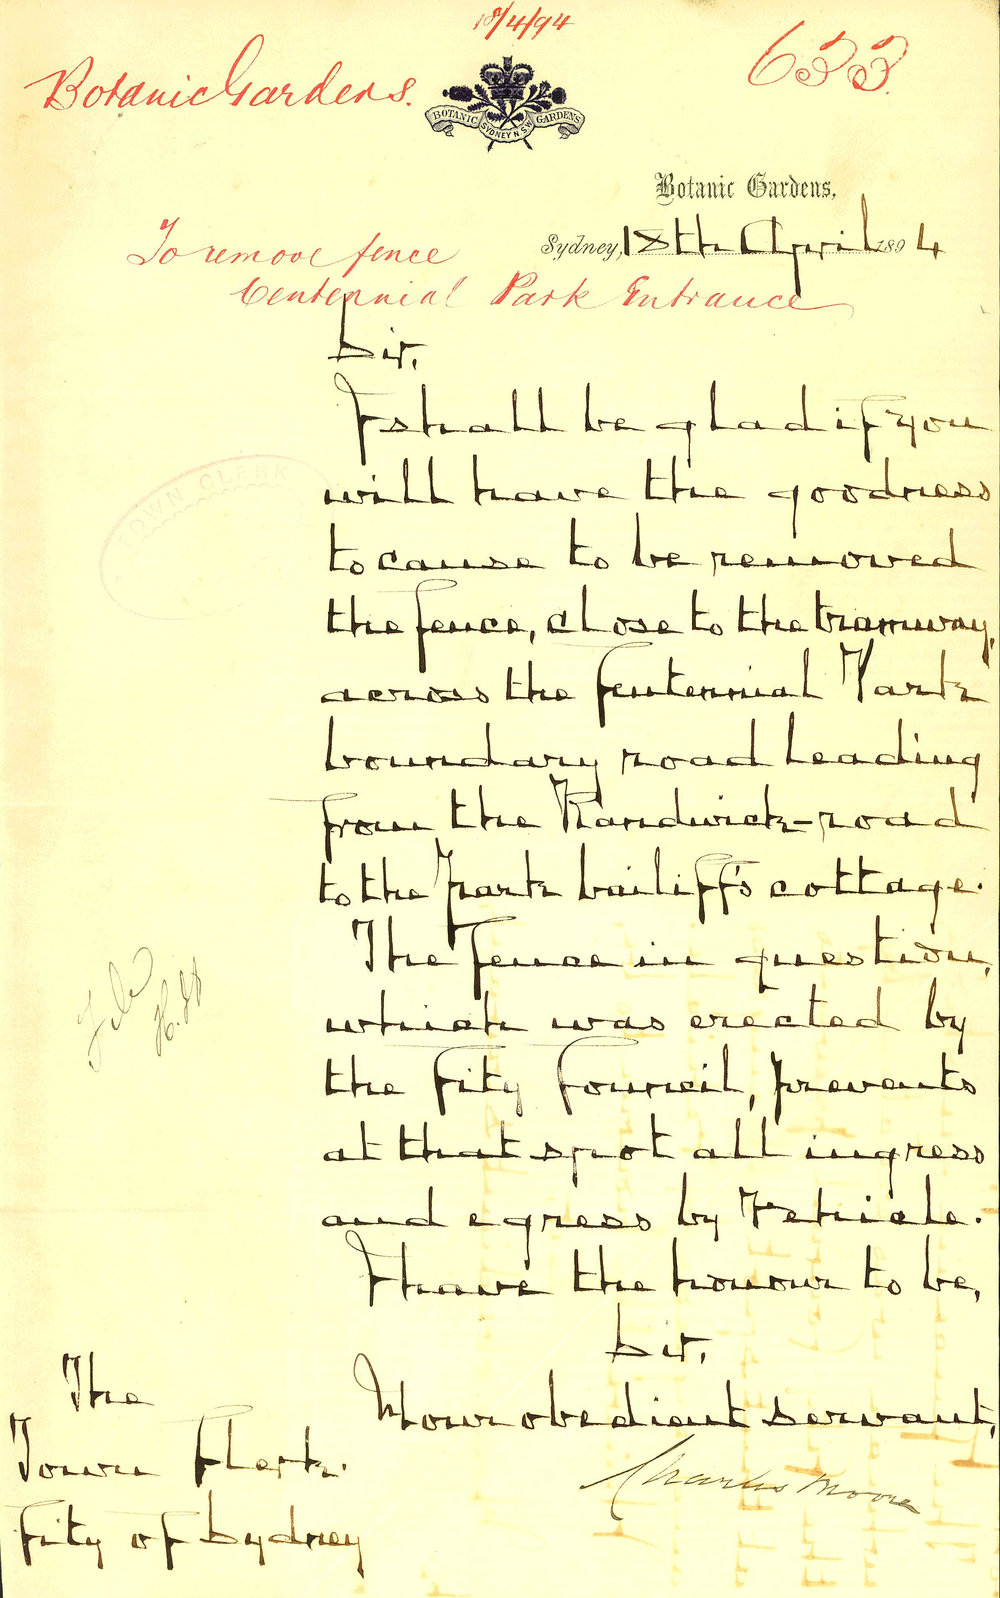 18/4/94
Botanic Gardens.
633.
BOTANIC GARDENS
SYDNEY N.S.W
Botanic Gardens,
Sydney, 18th April 1894
To remove fence
Centennial Park Entrance
Sir,
I shall be glad if you
will have the goodness
to cause to be removed
the fence, close to the tramway,
across the Centennial Park
boundary road leading
from the Randwick-road
to the Park bailiff's cottage.
TOWN CLERK
The fence in question,
which was erected by
the City Council, prevents
at that spot all ingress
and egress by vehicle.
File
I have the honour to be,
Sir,
Your obedient servant,
Charles Moore
The
Town Clerk.
City of Sydney